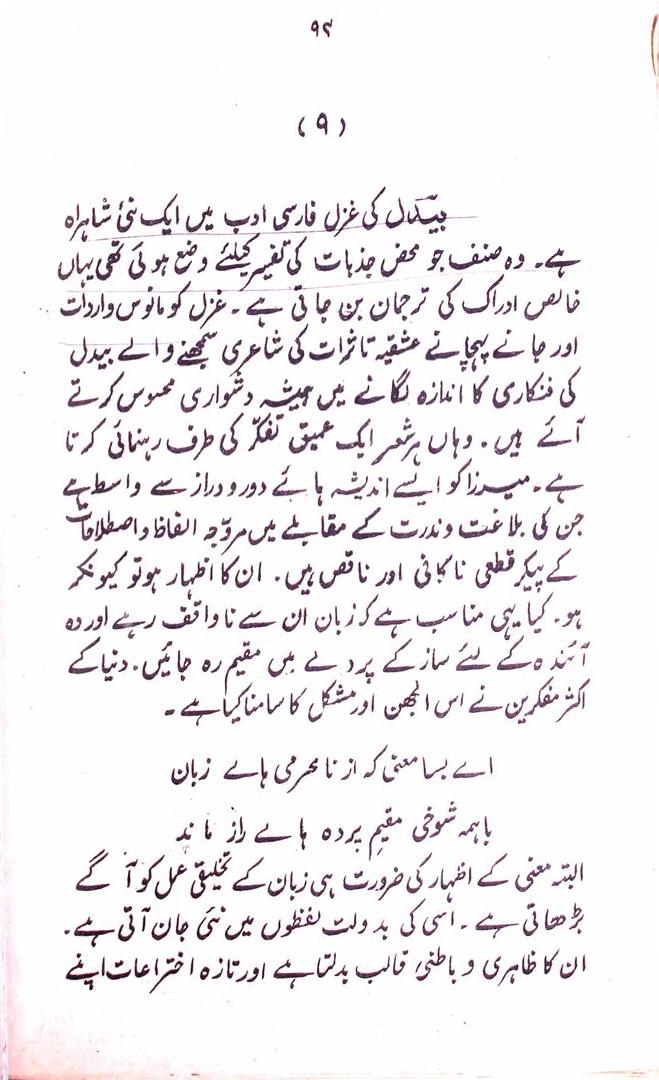 ۹۴
(۹)
بیدل کی غزل فارسی ادب میں ایک نئی شاہراہ
ہے۔ وہ صنف جو محض جذبات کی تفسیر کیلئے وضع ہوئی تھی یہاں
خالص ادراک کی ترجمان بن جاتی ہے۔ غزل کو مانوس واردات
اور جانے پہچانے عشقیہ تاثرات کی شاعری سمجھنے والے بیدل
کی فنکاری کا اندازہ لگانے میں ہمیشہ دشواری محسوس کرتے
آئے ہیں۔ وہاں ہر شعر ایک عمیق تفکّر کی طرف رہنمائی کرتا
ہے۔ میرزا کو ایسے اندیشہ ہائے دور و دراز سے واسطہ ہے
جن کی بلاغت و ندرت کے مقابلے میں مروّجہ الفاظ و اصطلاحات
کے پیکر قطعی ناکافی اور ناقص ہیں۔ ان کا اظہار ہو تو کیونکر
ہو۔ کیا یہی مناسب ہے کہ زبان ان سے ناواقف رہے اور وہ
آئندہ کے لئے ساز کے پردے میں مقیم رہ جائیں۔ دنیا کے
اکثر مفکرین نے اس الجھن اور مشکل کا سامنا کیا ہے۔
اے بسا معنی کہ از نا محرمی ہاے زبان
باہمہ شوخی مقیمِ پردہ ہاے راز ماند
البتہ معنی کے اظہار کی ضرورت ہی زبان کے تخلیقی عمل کو آگے
بڑھاتی ہے۔ اسی کی بدولت لفظوں میں نئی جان آتی ہے۔
ان کا ظاہری و باطنی قالب بدلتا ہے اور تازہ اختراعات اپنے